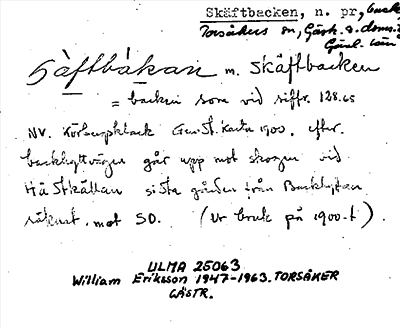 Skäftbacken, n. pr., back,
Torsåkers sn, Gästr. ö. doms.
Gävl. län
Sàftbákan m. Skäftbacken
= backen som vid siffr. 128.65
NV. Gen.St. Karta 1900, efter
backhyttvägen går upp mot skogen vid
sista gården från Backhyttan
räknat, mot SO. (Ur bruk på 1900-t).
ULMA 25063
William Eriksson 1947-1963. TORSÅKER
GÄSTR.